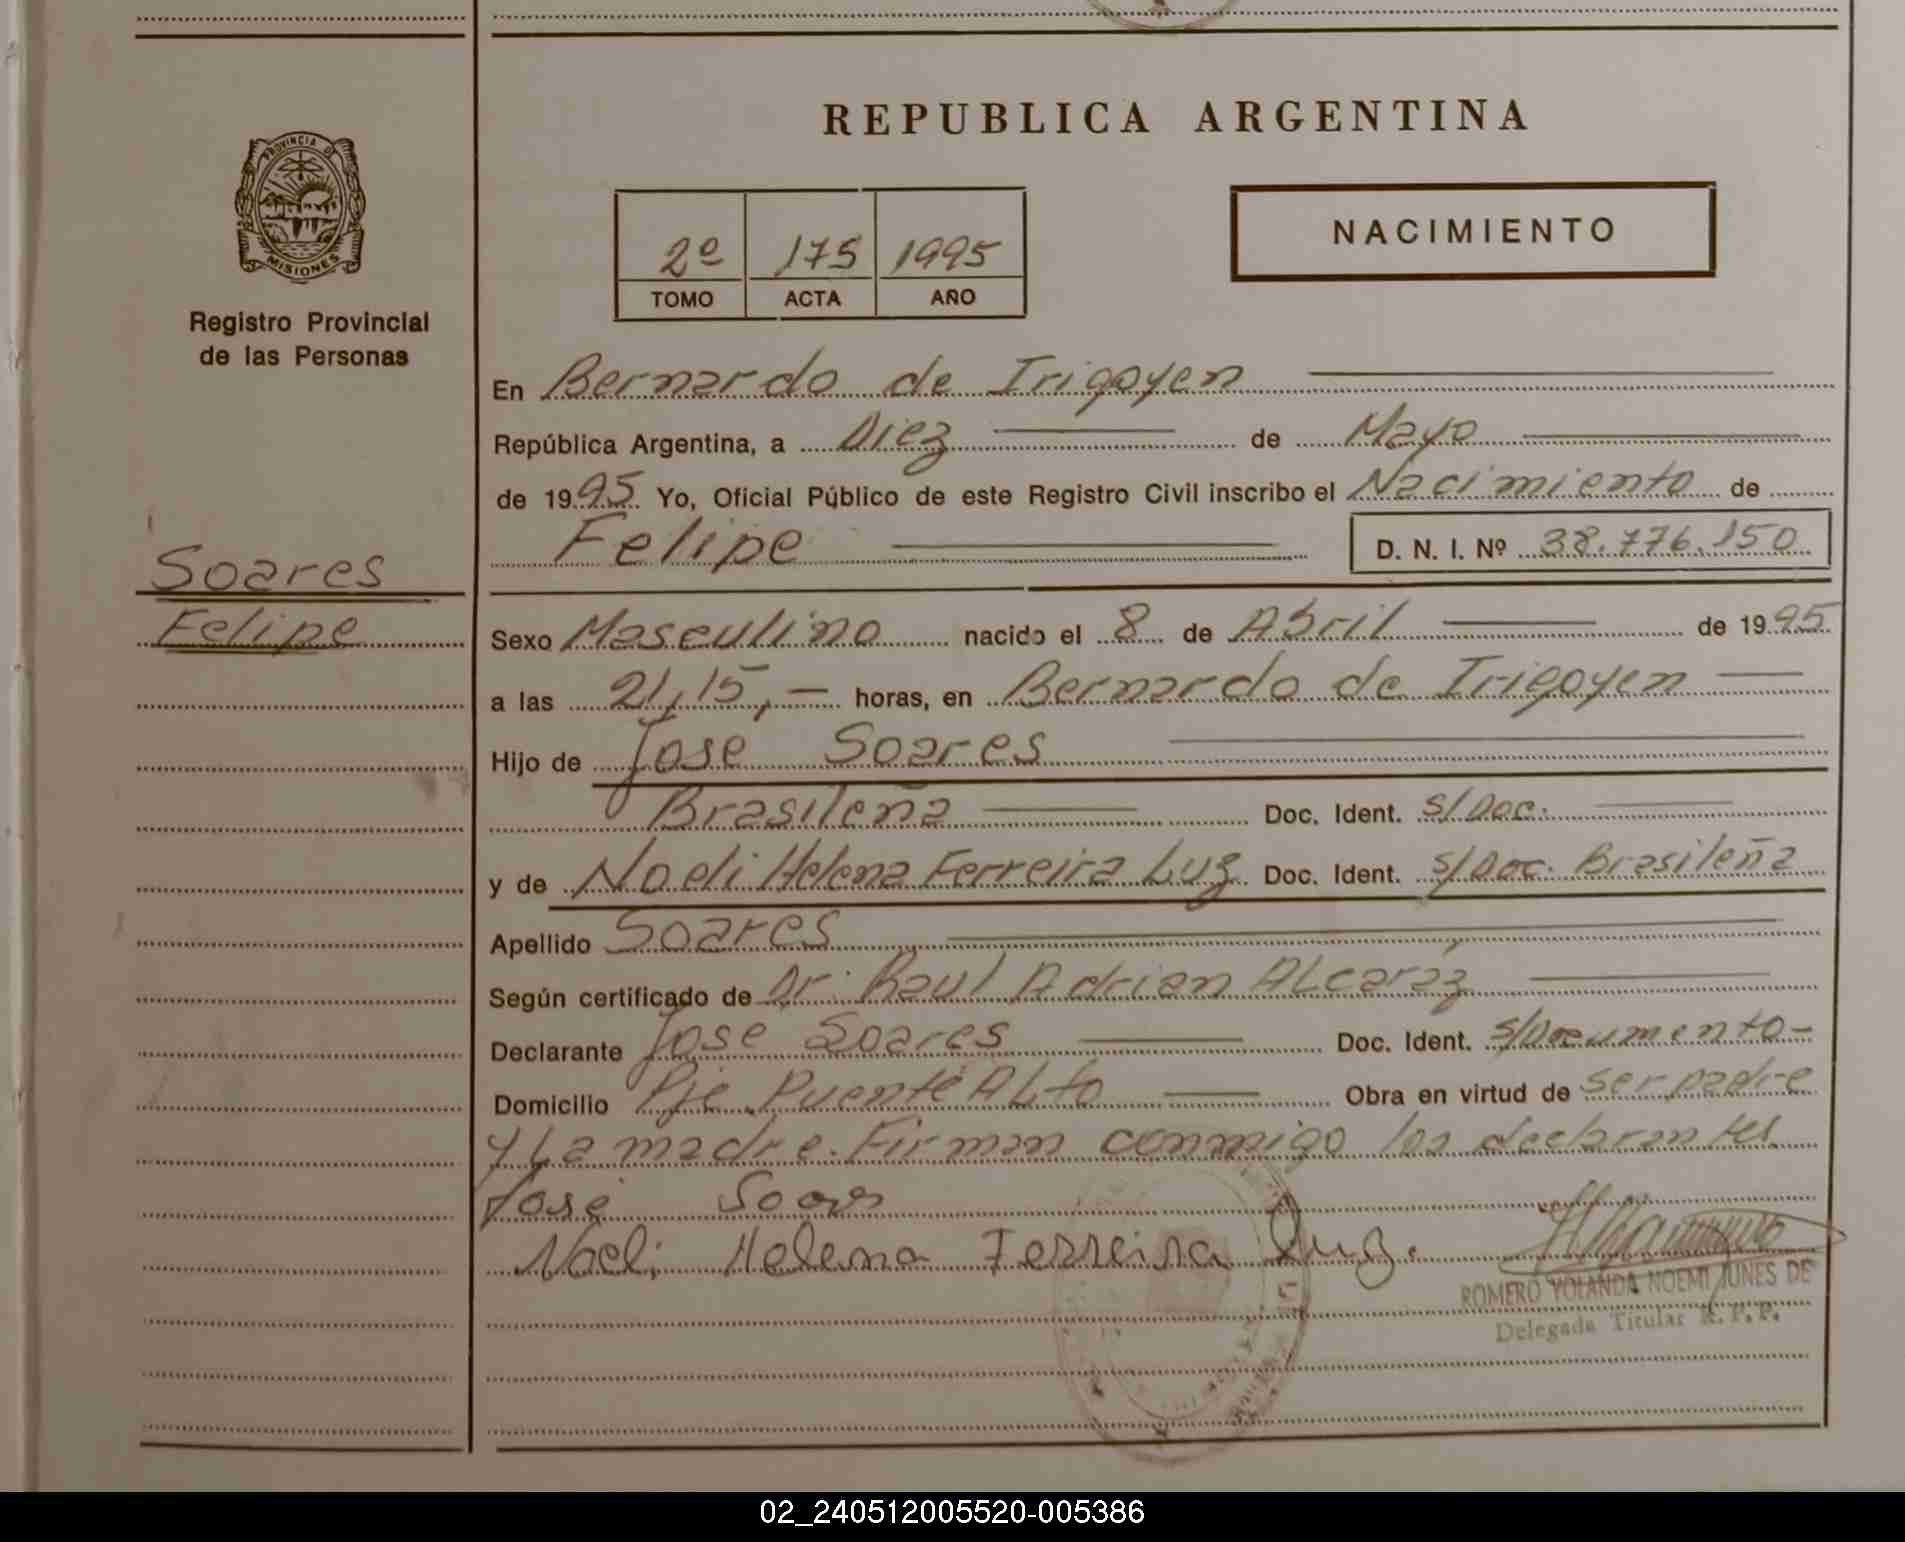 PROVINCIA DE
MISIONES
Registro Provincial
de las Personas
Soares
Felipe
REPUBLICA ARGENTINA
2º 175 1995
TOMO ACTA AÑO
NACIMIENTO
En Bernardo de Irigoyen
República Argentina, a Diez de Mayo
de 1995 Yo, Oficial Público de este Registro Civil inscribo el Nacimiento de
Felipe D. N. I. Nº 38.776.150
Sexo Masculino nacido el 8 de Abril de 1995
a las 21,15,- horas, en Bernardo de Irigoyen
Hijo de Jose Soares
Brasileña Doc. Ident. s/Doc.
y de Noeli Helena Ferreira Luz Doc. Ident. s/Doc. Brasileña
Apellido Soares
Según certificado de Dr. Raul Adrian ALcaráz
Declarante Jose Soares Doc. Ident. s/Documento-
Domicilio Pje Puente ALto Obra en virtud de ser padre
y La madre. Firman conmigo los declarantes
José Soares
Noeli Helena Ferreira Luz.
ROMERO YOLANDA NOEMI JUNES DE
Delegada Titular R. P. P.
02_240512005520-005386